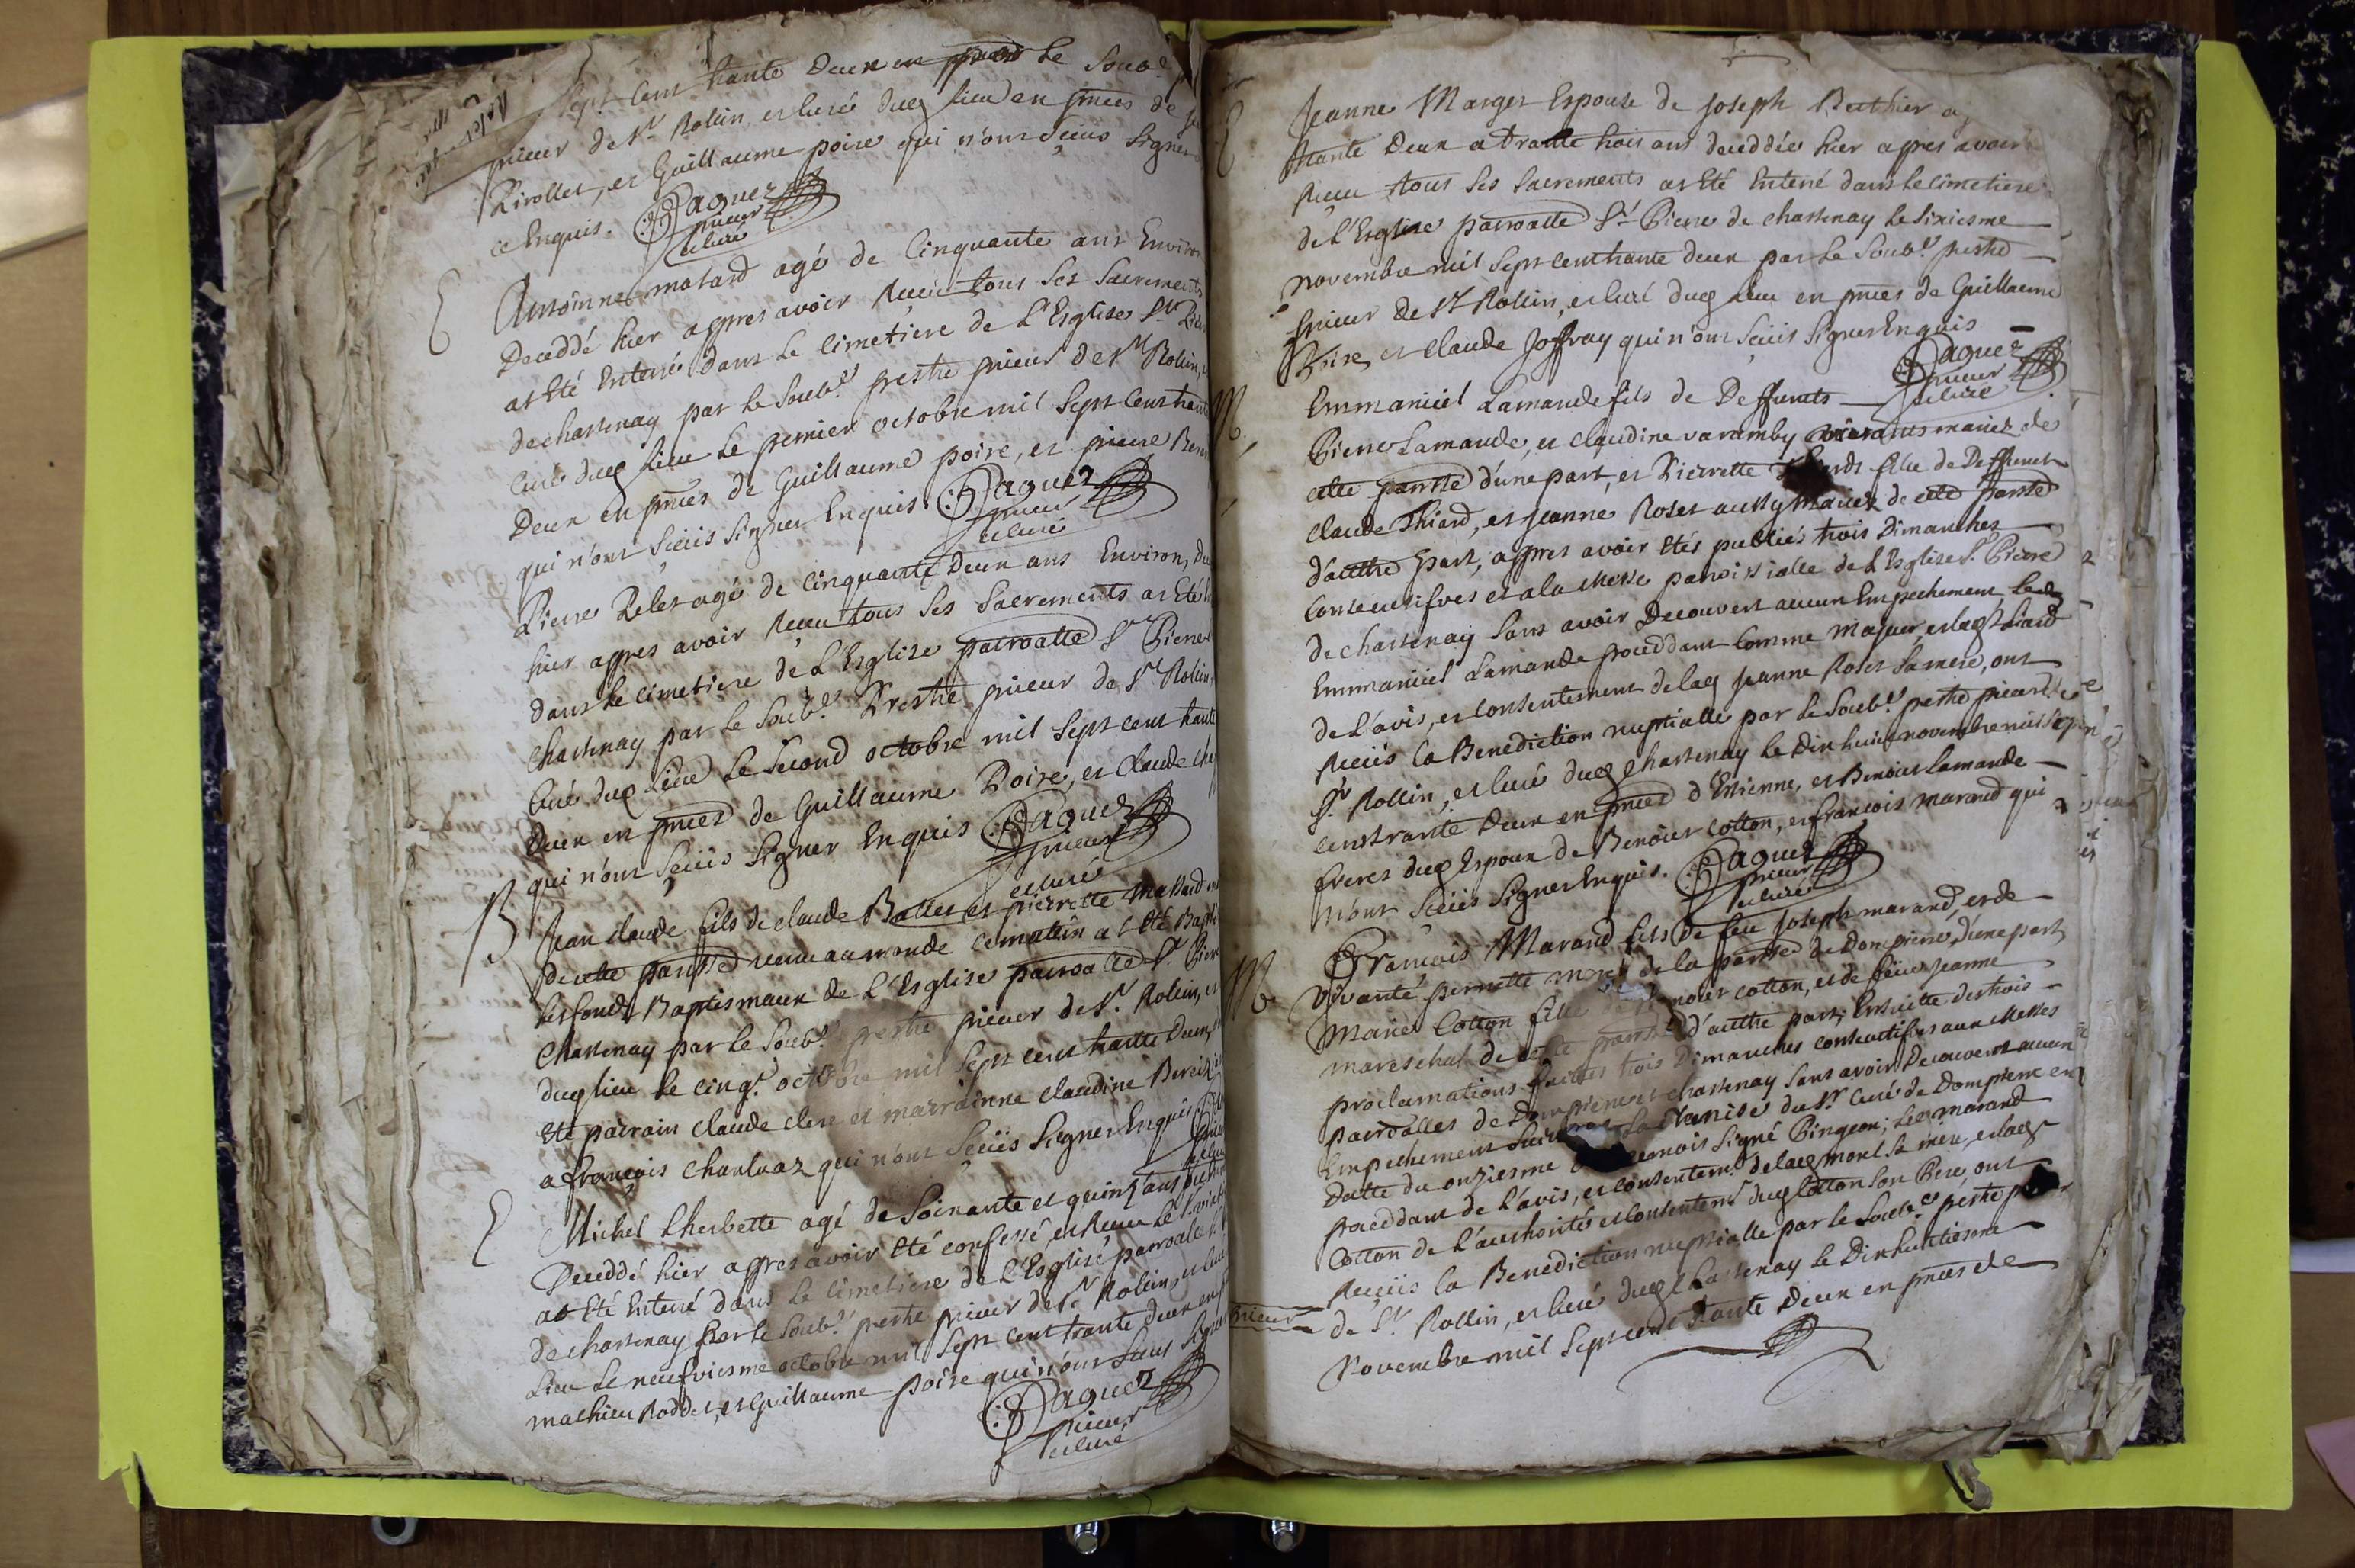 Sept cent trante Deux en
prieur de St Rollin, et curé dug lieu en pnces de
Rivollet, et Guillaume poire qui n'ont sceus signer
ce Enquis. Paquez
prieur
et curé
E
Antoinne motard agé de Cinquante ans Environ
Deceddé hier appres avoir Receu tous ses Sacrements
at Eté Enterré dans le Cimetiere de L'Esglise St
de chastenay par le Soub.é prestre prieur de St Rollin,
Curé dug lieu Le premier octobre mil Sept Cent trante
Deux en pnces de Guillaume poire, et pierre
qui n'ont Sceus Signer Enquis. Paquez
prieur
et curé
Pierre Pelet agé de Cinquante Deux ans Environ,
hier appres avoir Receu tous Ses Sacrements at Eté
dans le Cimetiere de L'Esglise parroalle St Pierre
Chastenay par le Soub.é Prestre prieur de St Rollin,
Curé dug Lieu Le Second octobre mil Sept cent trante
Deux en pnces de Guillaume Poire, et Claude
qui n'ont Sceus Signer Enquis Paquez
prieur
et curé
B
Jean Claude fils de Claude Ballet et pierrette
de cette parrsse venu au monde ce matin at Eté
les fonds Baptismaux de L'Esglise parroalle St
Chastenay par le Soub.é prestre prieur de St Rollin, et
dug lieu le cinq.e octobre mil Sept cent trante deux,
Eté pairain Claude et marrainne Claudine
a françois qui n'ont Sceus Signer Enquis
E
Michel Lherbette agé de Soixante et quinz ans
Deceddé hier appres avoir Eté confessé, et Receu le
at Eté Enterré dans le Cimetiere de L'Esglise parroalle
de chastenay par le Soub.é prestre prieur de St Rollin, et curé
Lieu Le neufviesme octobre mil Sept cent trante deux en
mathieu et Guillaume poire qui n'ont Sceus Signer
Paquez
prieur
et curé
E
Jeanne Marger Espouse de Joseph Berthier
trante Deux a trante trois ans deceddée hier apres avoir
Receu tous ses Sacrements at Eté Enterré dans le cimetiere
de L'Esglise parroalle St Pierre de chastenay le Sixiesme
novembre mil Sept cent trante deux par le Soub.é prestre
prieur de St Rollin, et curé dug Lieu en pnces de Guillaume
Poire, et Claude Joffray qui n'ont Sceus Signer Enquis
Paquez
prieur
et curé
M
Emmanuel Lamande fils de Deffunts
Pierre Lamande, et claudine varamby
cette parrsse d'une part, et Pierrette fille de Deffunct
Claude Thiard, et Jeanne Roset aussy de cette parrsse
d'auttre part, appres avoir Etés publiés trois Dimanches
Consecutifves et a la Messe parroissialle de L'Esglise St Pierre
de chastenay Sans avoir Decouvert aucun Empechement, Led
Emmanuel Lamande proceddant Comme Majeur, et lag Thiard
de L'avis, et Consentement de lag Jeanne Roset Sa mere, ont
Receus la Benediction nuptialle par le Soub.é prestre prieur de
St Rollin, et curé dug Chastenay le Dixhuict novembre mil Sept
cent trante Deux en pnces d'Estienne, et Benoist Lamande
freres dug Espoux de Benoist Cotton, et francois marand qui
n'ont Sceus Signer Enquis. Paquez
prieur
et curé
M
Francois Marand fils de feu Joseph marand, et de
vivante pernette morel de la parrsse de Dompierre, d'une part
Marie Cotton fille de Benoist Cotton, et de feüe Jeanne
mareschal de cette parrsse d'auttre part, Ensuitte des trois
proclamations faittes trois Dimanches consecutifves aux Messes
parroalles de Dompierre et chastenay Sans avoir Decouvert aucun
Empechement Suivant La Remise du Sr Curé de Dompierre en
Datte du onziesme Signé Pingeon; Led marand
proceddant de L'avis, et Consentem.t de lag morel Sa mere, et lag
Cotton de L'authorité et Consentem.t dug Cotton Son Pere, ont
Receus la Benediction nuptialle par le Soub.é prestre prieur
prieur
de St Rollin, et curé dug Chastenay le Dixhuictiesme
Novembre mil Sept cent trante Deux en pnces de